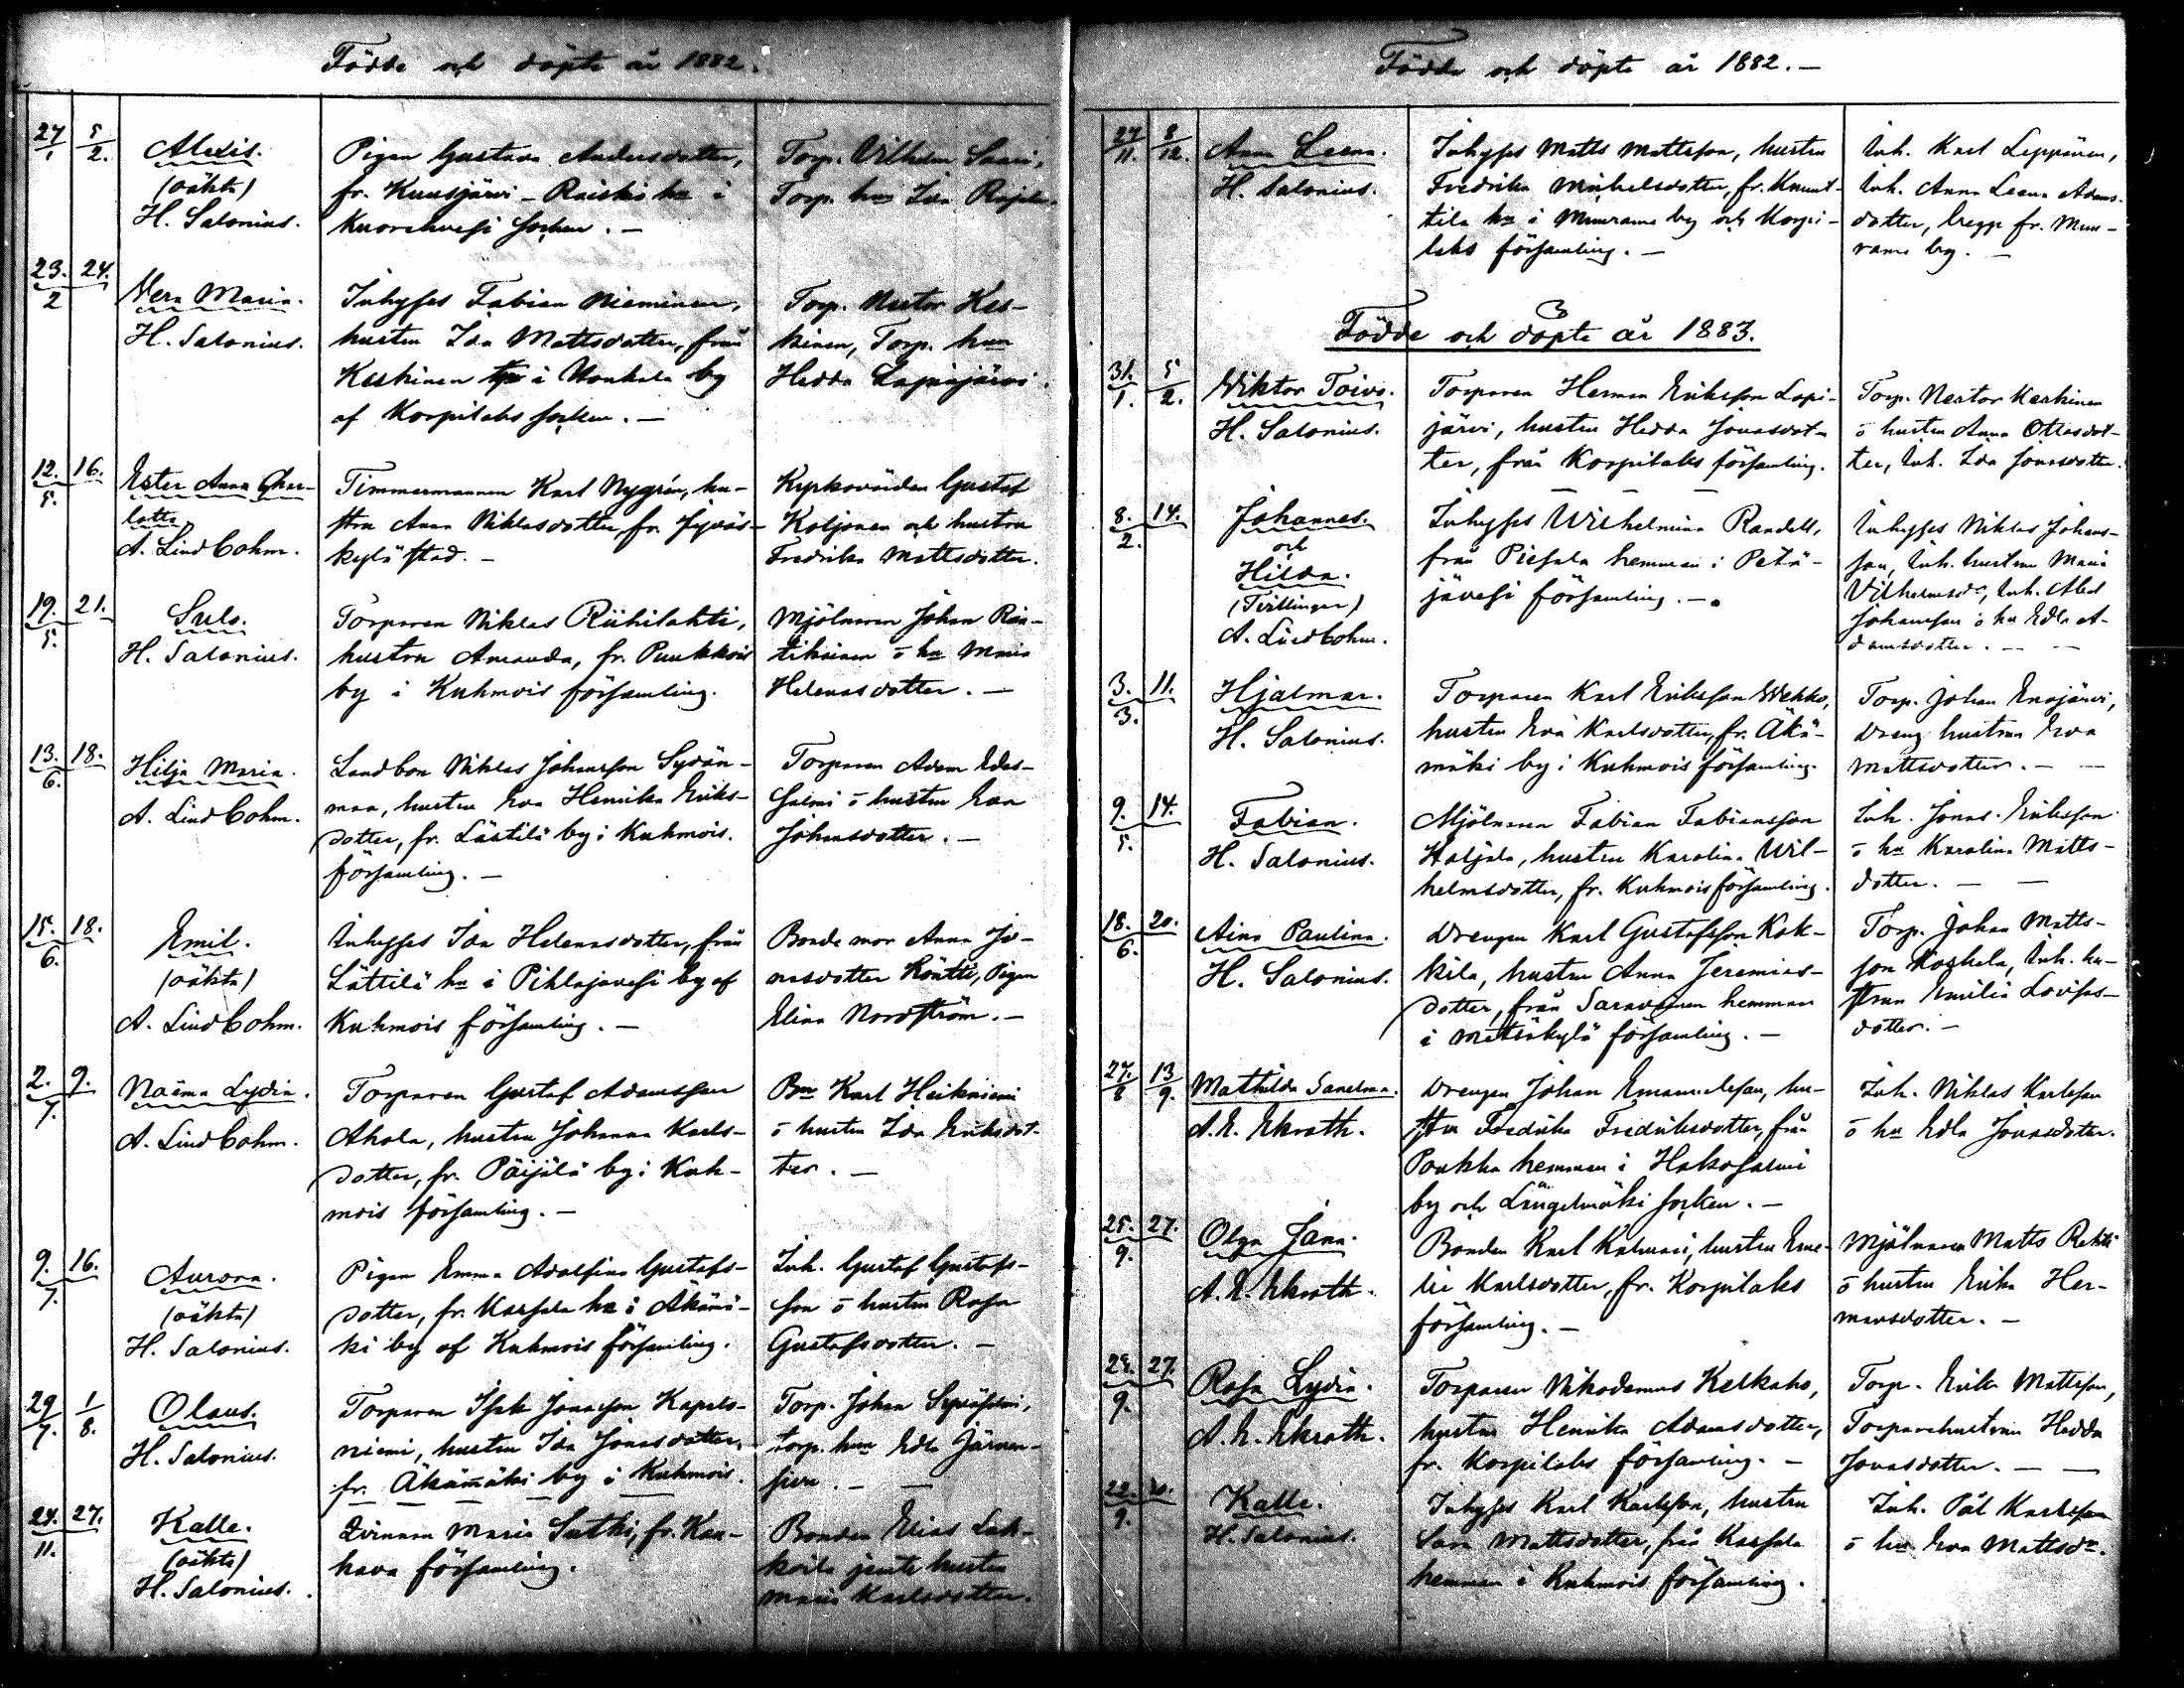 Födde och döpte år 1882.
27/1 5/2. Alexis. (oäkta) H. Salonius.
Pigan Gustava Andersdotter,
fr. Kuusjärvi-Raiski hn i
Kuorehvesi socken. —
Torp. Vilhelm Saari,
Torp. hn Ida Rajala.
23./2 24. Vera Maria. H. Salonius.
Inhyses Fabian Nieminen,
hustru Ida Mattsdotter, från
Keskinen tp i Honkala by
af Korpilaks socken. —
Torp. Nestor Kes-
kinen, Torp. hun
Hedda Lapinjärvi.
12./5. 16. Ester Anna Char-
lotta A. Lindbohm.
Timmermannen Karl Nygrén, hu-
stru Anna Niklasdotter, fr. Jyväs-
kylä stad. —
Kyrkovärden Gustaf
Koljonen och hustru
Fredrika Mattsdotter.
19./5. 21. Sulo. H. Salonius.
Torparen Niklas Riihilahti,
hustru Amanda, fr. Puukkois
by i Kuhmois församling.
Mjölnaren Johan
tikainen o hn Maria
Helenasdotter. —
13./6. 18. Hilja Maria. A. Lindbohm.
Landbon Niklas Johansson Sydän-
maa, hustru Eva Henrika Eriks-
dotter, fr. Lästilä by i Kuhmois.
församling. —
Torparen Adam Edes-
salmi o hustru Eva
Johansdotter. —
15./6. 18. Emil. (oäkta) A. Lindbohm.
Inhyses Ida Helenasdotter, från
Lättilä hn i Pihlajavesi by af
Kuhmois församling. —
Bonde mor Anna Jo-
nasdotter Köntti, Pigan
Elina Nordström. —
2./7. 9. Naëma Lydia. A. Lindbohm.
Torparen Gustaf Adamsson
Ahola, hustru Johanna Karls-
dotter, fr. Päijälä by i Kuh-
mois församling. —
Bn Karl Heikniemi
o hustru Ida Eriksdot-
ter. —
9./7. 16. Aurora. (oäkta) H. Salonius.
Pigan Emma Adolfina Gustafs-
dotter, fr. Kassala hn i Äkämä-
ki by af Kuhmois församling.
Inh. Gustaf Gustafs-
son o hustru Rosa
Gustafsdotter. —
29/7. 1/8. Olaus. H. Salonius.
Torparen Isak Jonasson Kapelo-
niemi, hustru Ida Jonasdotter,
fr. Äkämäki by i Kuhmois.
Torp. Johan Syväsalmi,
torp. hun Edla Järven-
sivu. —
24./11. 27. Kalle. (oäkta) H. Salonius.
Qvinnan Maria Sutki, fr. Kau-
hava församling.
Bonden Elias Luk-
koila jemte hustru
Maria Karlsdotter.
Födde och döpte år 1882. —
27/11. 8/12. Anna Leena. H. Salonius.
Inhyses Matts Mattsson, hustru
Fredrika Michelsdotter, fr. Knuut-
tila hn i Muurame by och Korpi-
laks församling. —
Inh. Karl Leppänen,
Inh. Anna Leena Adams-
dotter, begge fr. Muu-
rame by. —
Födde och döpte år 1883.
31./1. 5/2. Wiktor Toivo. H. Salonius.
Torparen Herman Eriksson Lapi-
järvi, hustru Hedda Jonasdot-
ter, från Korpilaks församling.
Torp. Nestor Keskinen
o hustru Anna Ottosdot-
ter, Inh. Ida Jonasdotter.
8./2. 14. Johannes. och Hilda. (Tvillingar) A. Lindbohm.
Inhyses Wilhelmina Randell,
från Piesala hemman i Petä-
jävesi församling. —
Inhyses Niklas Johans-
son, Inh. hustrun Maria
Vilhelmsdr, Inh. Abel
Johansson o hn Edla A-
damsdotter. —
3./3. 11. Hjalmar. H. Salonius.
Torparen Karl Eriksson Wehko,
hustru Eva Karlsdotter, fr. Äkä-
mäki by i Kuhmois församling.
Torp. Johan Enojärvi,
Dreng hustrun Eva
Mattsdotter. —
9./5. 14. Fabian. H. Salonius.
Mjölnaren Fabian Fabiansson
Haljala, hustru Karolina Wil-
helmsdotter, fr. Kuhmois församling.
Inh. Jonas Eriksson
o hn Karolina Matts-
dotter. —
18./6. 20. Aina Paulina. H. Salonius.
Drengen Karl Gustafsson Kok-
kila, hustru Anna Jeremias-
dotter, från Saravainen hemman
i Mätäskylä församling. —
Torp. Johan Matts-
son Koskela, Inh. hu-
strun Emilia Lovisas-
dotter. —
27./8 13/9. Mathilda Sanelma. A. E. Ekroth.
Drengen Johan Emanuelsson, hu-
stru Fredrika Fredriksdotter, från
Poukka hemman i Hakosalmi
by och Längelmäki socken. —
Inh. Niklas Karlsson
o hn Edla Jonasdotter.
25./9. 27. Olga Jana. A. E. Ekroth.
Bonden Karl Kalmari, hustru Eme-
lie Karlsdotter, fr. Korpilaks
församling. —
Mjölnaren Matts
o hustru Erika Her-
mansdotter. —
24./9. 27. Rosa Lydia. A. E. Ekroth.
Torparen Nikodemus Kelkaho,
hustru Henrika Adamsdotter,
fr. Korpilaks församling. —
Torp. Erik Mattsson,
Torparehustrun Hedda
Jonasdotter. —
22./9. Kalle. H. Salonius.
Inhyses Karl Karlsson, hustru
Sara Mattsdotter, från Kassala
hemman i Kuhmois församling.
Inh. Pål Karlsson
o hn Eva Mattsdr.